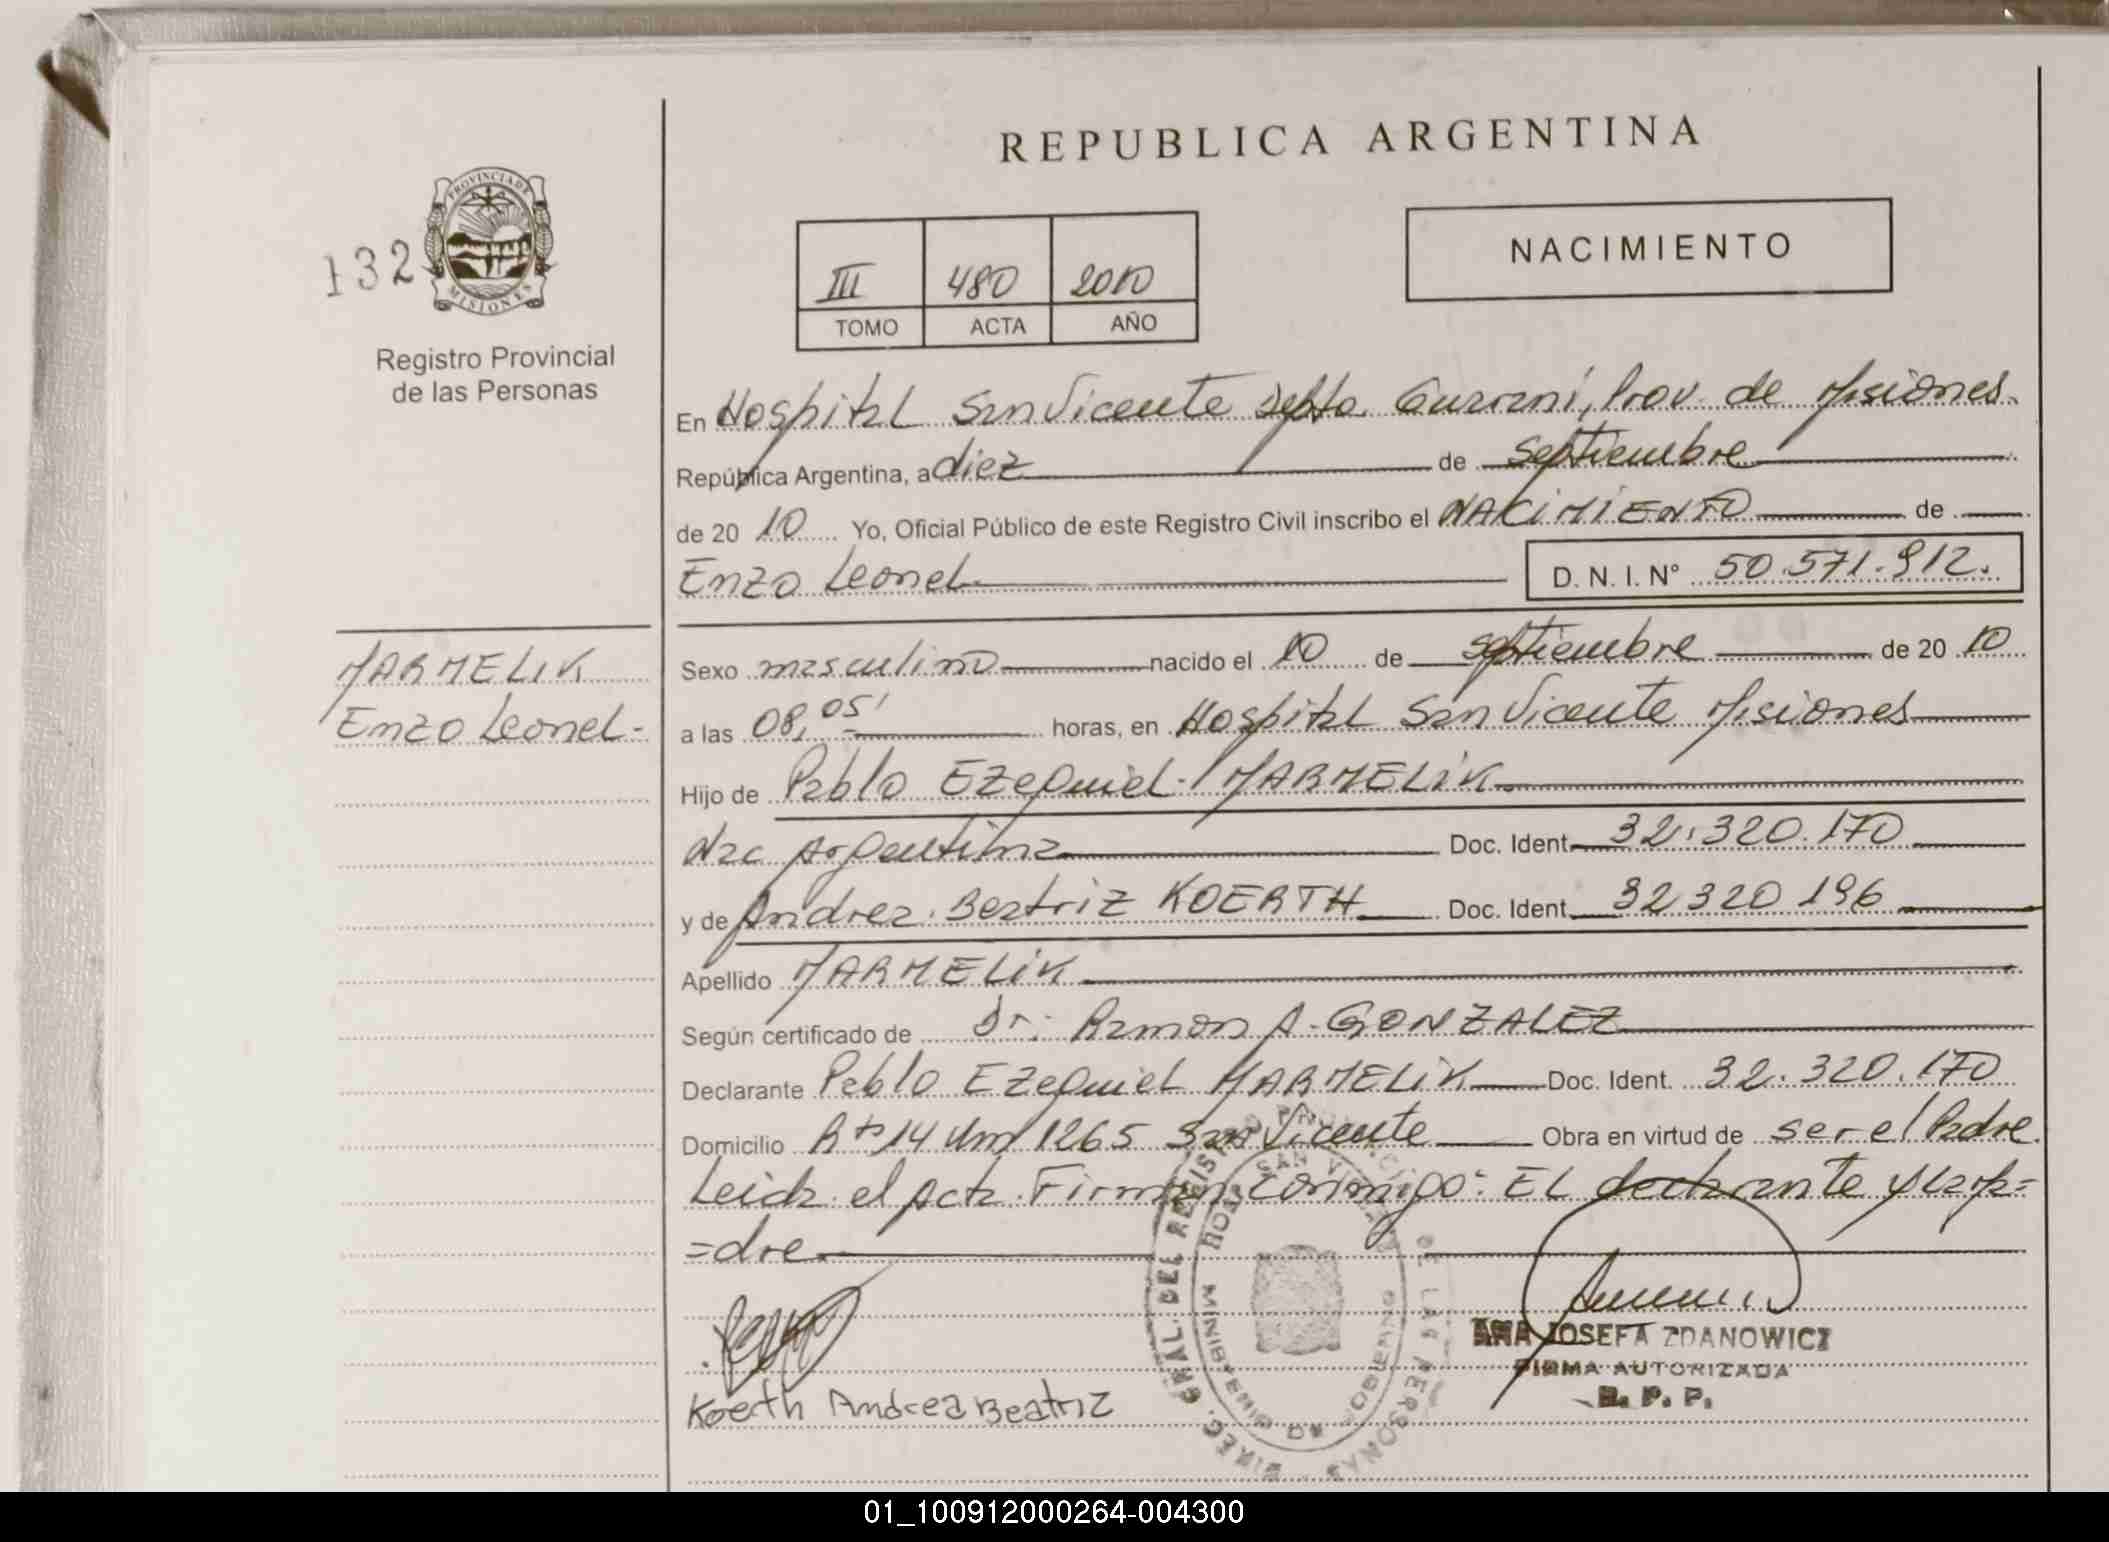 REPUBLICA ARGENTINA
132
PROVINCIA DE
MISIONES
Registro Provincial
de las Personas
III 480 2010
TOMO ACTA AÑO
NACIMIENTO
En Hospital San Vicente Depto. Guaraní, Prov. de Misiones
República Argentina, a diez de septiembre
de 20 10 Yo, Oficial Público de este Registro Civil inscribo el NACIMIENTO de
Enzo Leonel D. N. I. N° 50.571.912.
MARMELIK
Enzo Leonel-
Sexo masculino nacido el 10 de septiembre de 20 10
a las 08,05' horas, en Hospital San Vicente Misiones
Hijo de Pablo Ezequiel MARMELIK
Nac Argentina Doc. Ident. 32.320.170
y de Andrea Beatriz KOERTH Doc. Ident. 32320196
Apellido MARMELIK
Según certificado de Dr. Ramon A. GONZALEZ
Declarante Pablo Ezequiel MARMELIK Doc. Ident. 32.320.170
Domicilio Rta 14 Km 1265 San Vicente Obra en virtud de ser el Padre.
Leida el Acta Firman conmigo: EL declarante y la ma=
=dre
ANA JOSEFA ZDANOWICZ
FIRMA AUTORIZADA
R. P. P.
Koerth Andrea Beatriz
01_100912000264-004300